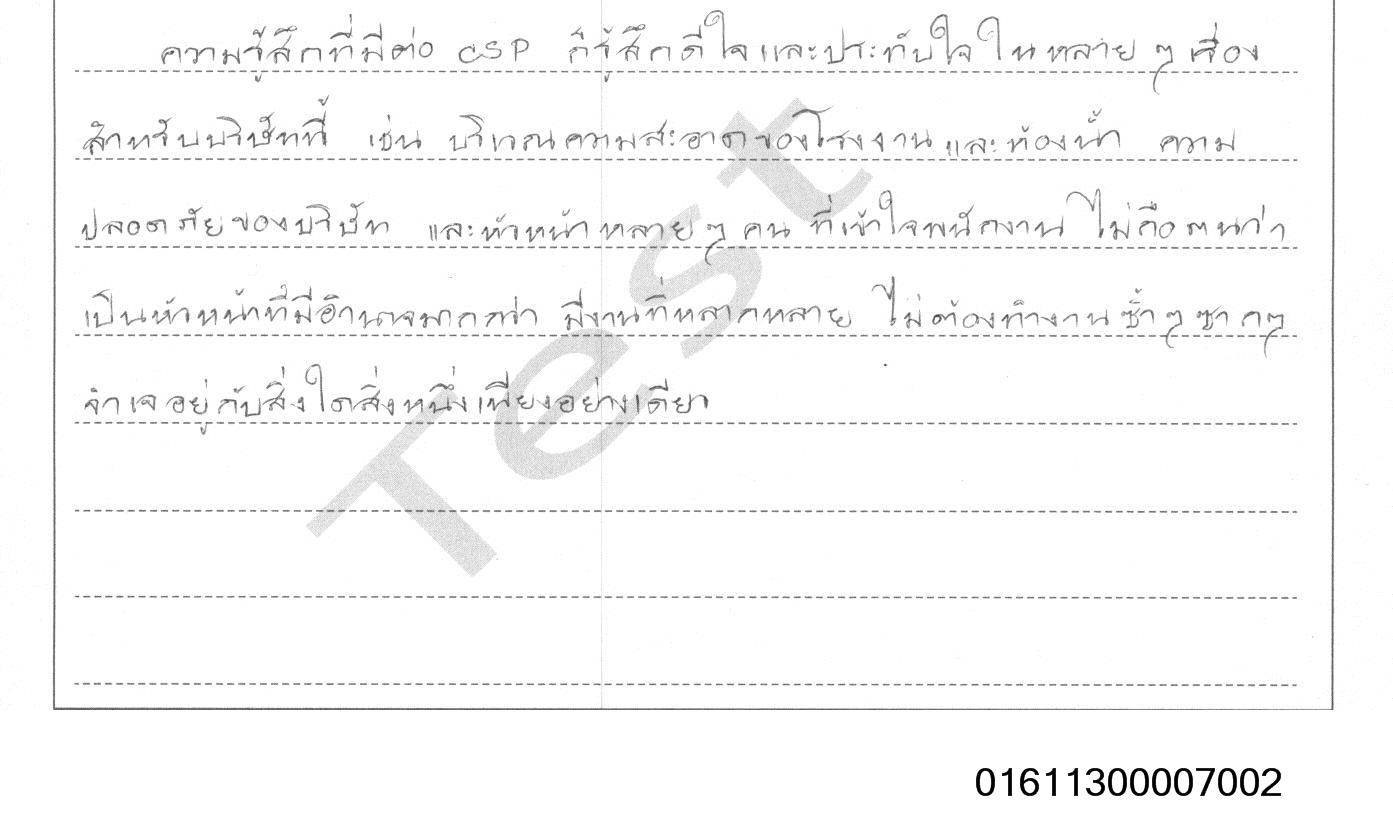 ความรู้สึกที่มีต่อ CSP ก็รู้สึกดีใจและประทับใจในหลายๆเรื่อง
สำหรับบริษัทนี้ เช่น บริเวณความสะอาดของโรงงานและห้องน้ำ ความ
ปลอดภัยของบริษัท และหัวหน้าหลายๆคน ที่เข้าใจพนักงาน ไม่ถือตนว่า
เป็นหัวหน้าที่มีอำนาจมากกว่า มีงานที่หลากหลาย ไม่ต้องทำงานซ้ำๆซากๆ
จำเจอยู่กับสิ่งใดสิ่งหนึ่งเพียงอย่างเดียว
Test
01611300007002